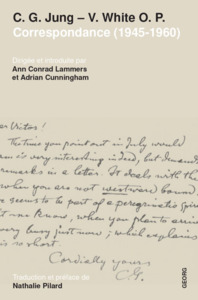 C. G. Jung – V. White O. P.
Correspondance (1945-1960)
Dirigée et introduite par
Ann Conrad Lammers
et Adrian Cunningham
The time you point out in July would
is very interesting indeed, but
remarks in a letter. It deals with the
when you are not westward bound,
seems to be part of a
know, when you plan to
busy just now; which explains
is so short.
Cordially yours
C.G.
Traduction et préface de
Nathalie Pilard
GEORG